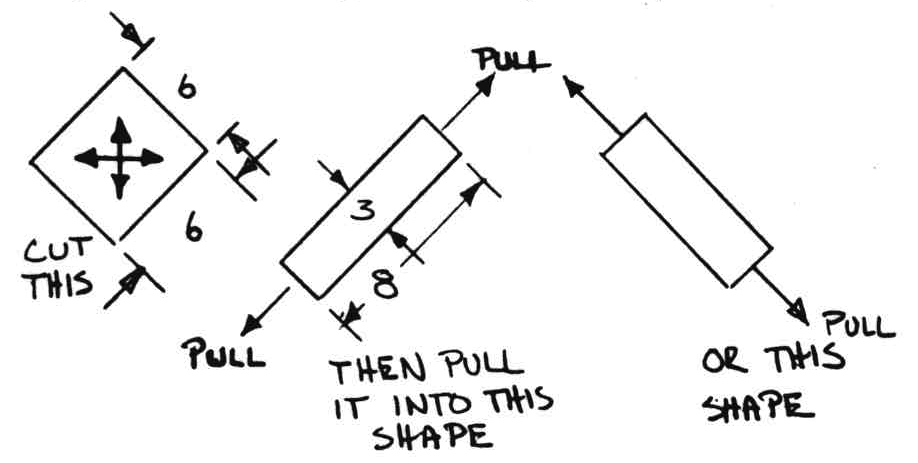 6
6
CUT
THIS
PULL
3
8
PULL
THEN PULL
IT INTO THIS
SHAPE
PULL
OR THIS
SHAPE